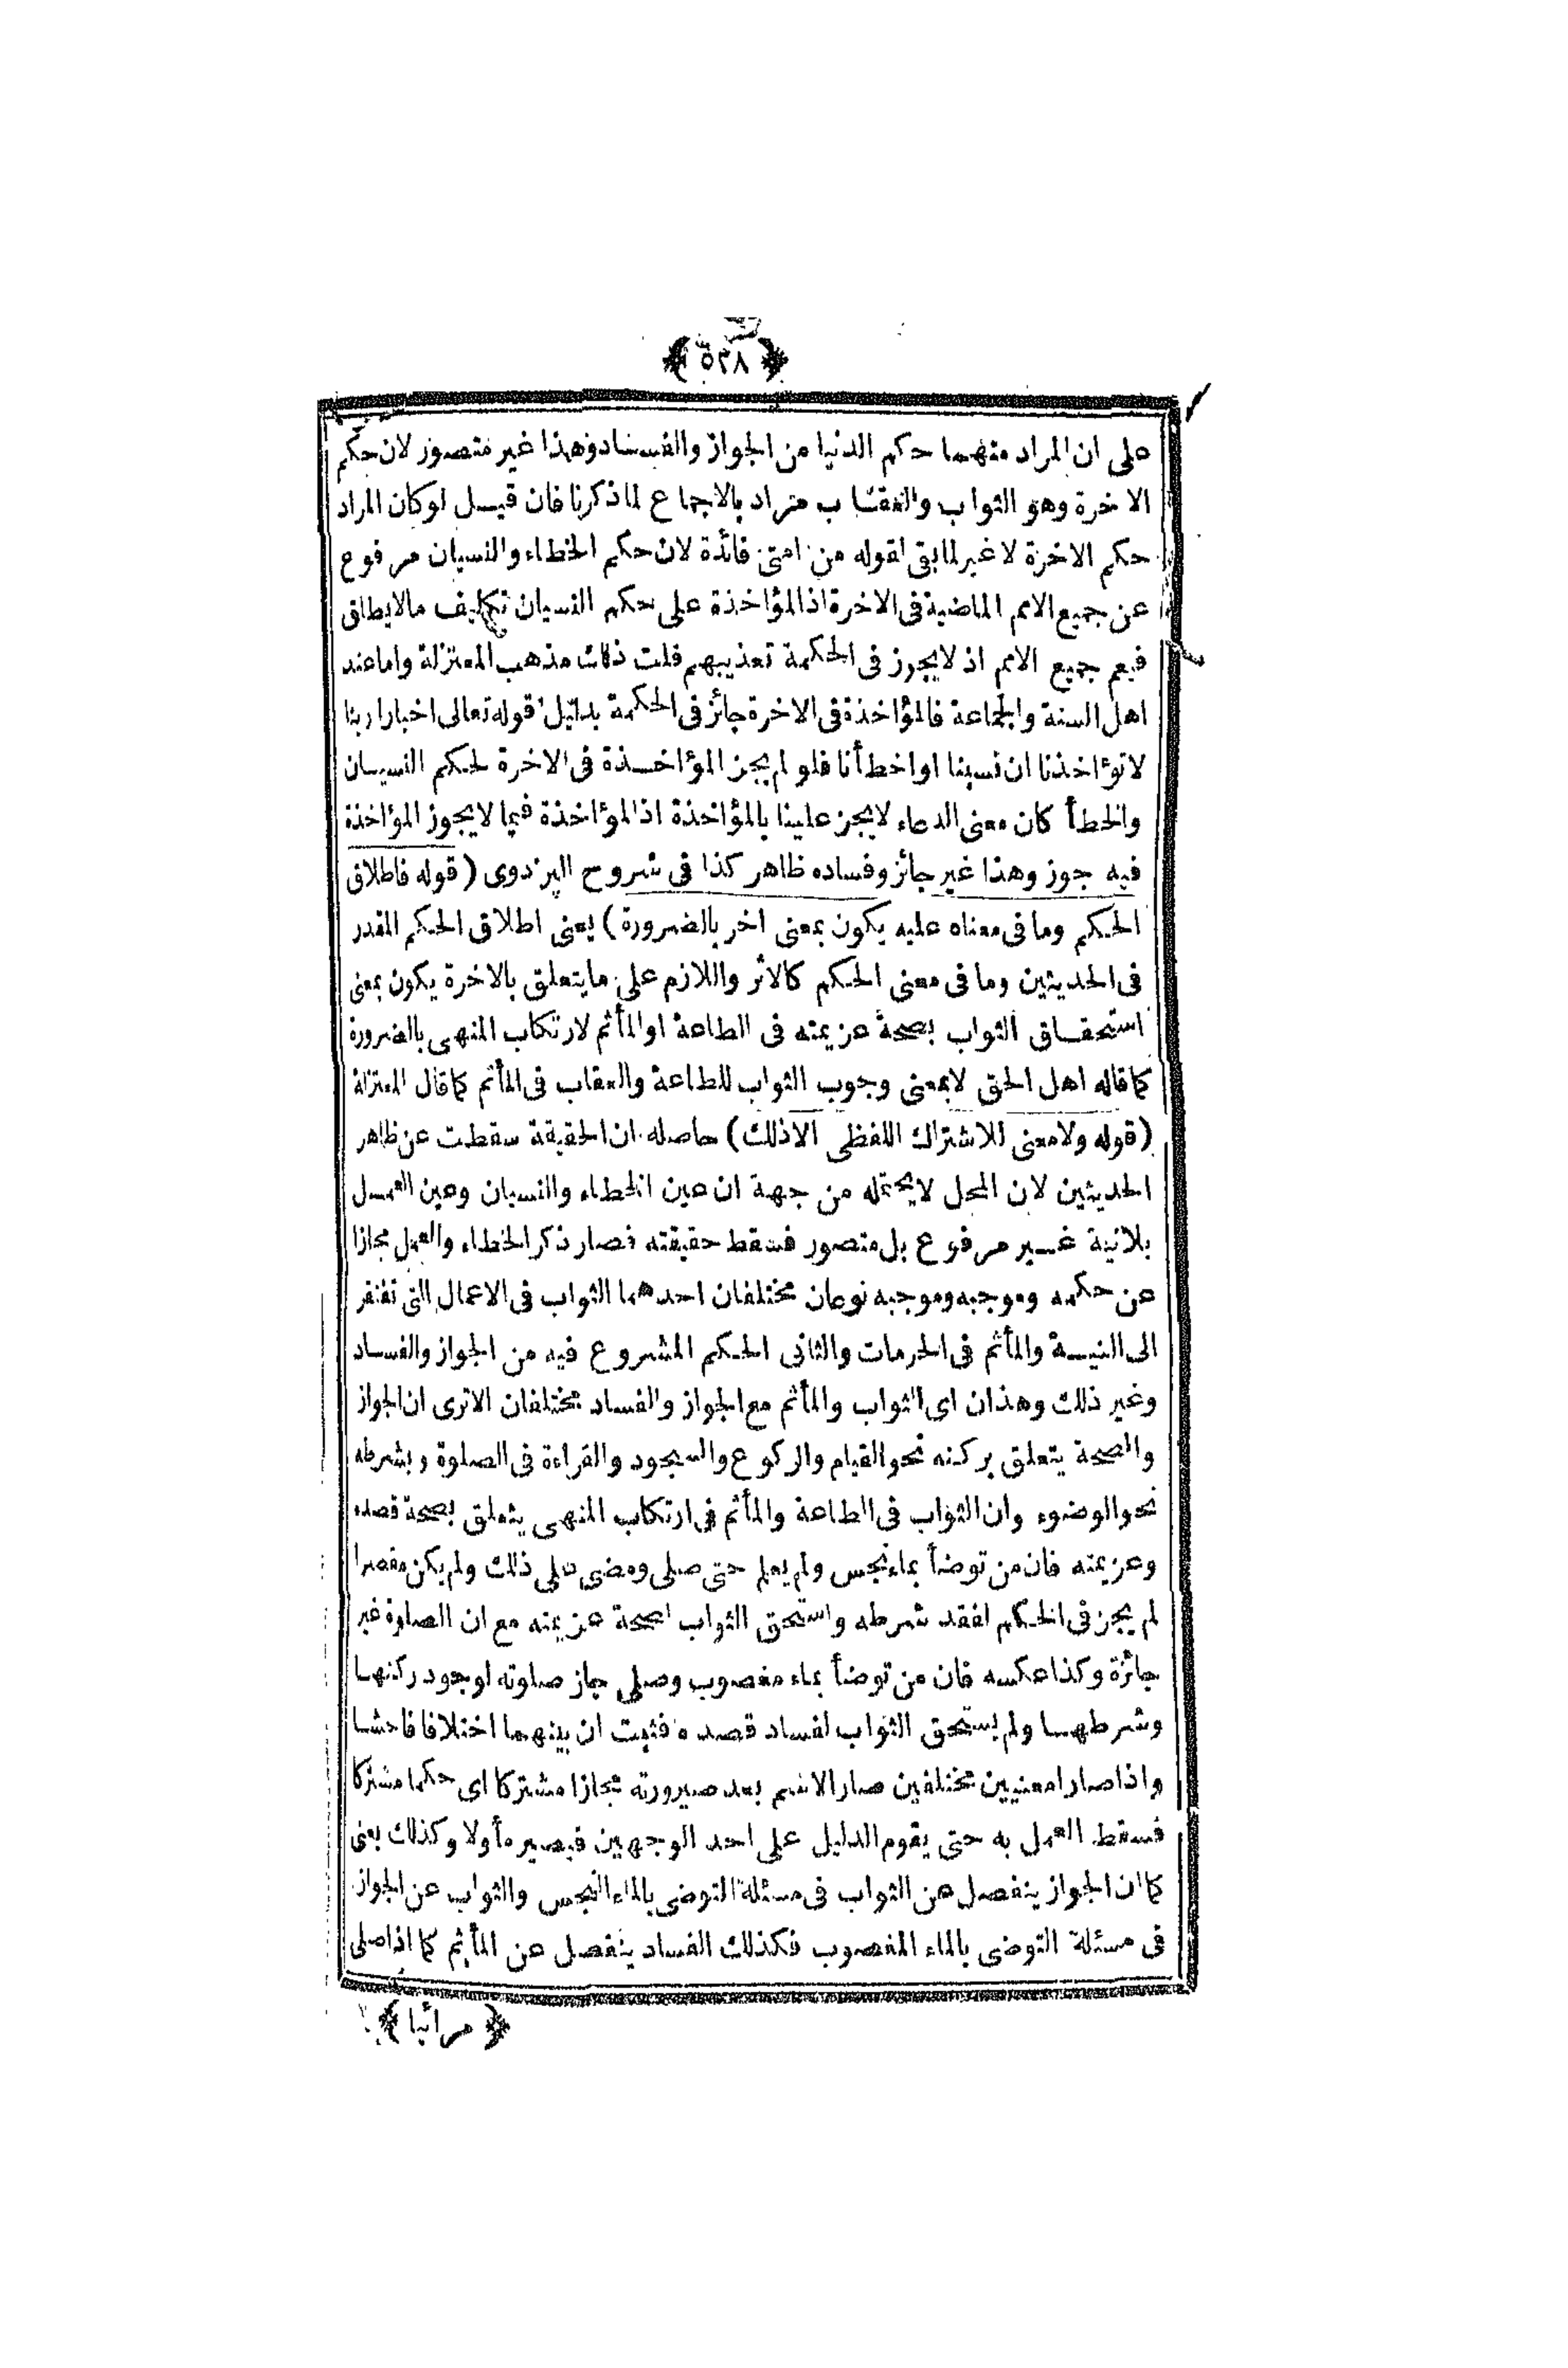 ﴿ ٥٣٨ ﴾
على ان المراد منهما حكم الدنيا من الجواز والفساد وهذا غير متصور لان حكم
الاخرة وهو الثواب والعقاب مراد بالاجماع لما ذكرنا فان قيل لوكان المراد
حكم الاخرة لاغير لما بقى لقوله من امتى فائدة لان حكم الخطاء والنسيان مرفوع
عن جميع الامم الماضية فى الاخرة اذ المؤاخذة على حكم النسيان تكليف مالايطاق
فيعم جميع الامم اذ لايجوز فى الحكمة تعذيبهم قلت ذلك مذهب المعتزلة واما عند
اهل السنة والجماعة فالمؤاخذة فى الاخرة جائز فى الحكمة بدليل قوله تعالى اخبارا ربنا
لاتؤاخذنا ان نسينا او اخطأنا فلو لم يجز المؤاخذة فى الاخرة لحكم النسيان
والخطأ كان معنى الدعاء لايجز علينا بالمؤاخذة اذ المؤاخذة فيما لايجوز المؤاخذة
فيه جوز وهذا غير جائز وفساده ظاهر كذا فى شروح البزدوى (قوله فاطلاق
الحكم وما فى معناه عليه يكون بمعنى اخر بالضرورة) يعنى اطلاق الحكم المقدر
فى الحديثين وما فى معنى الحكم كالاثر واللازم على مايتعلق بالاخرة يكون بمعنى
استحقاق الثواب بصحة عزيمته فى الطاعة او المأثم لارتكاب المنهى بالضرورة
كما قاله اهل الحق لابمعنى وجوب الثواب للطاعة والعقاب فى المأثم كما قال المعتزلة
(قوله ولامعنى للاشتراك اللفظى الاذلك) حاصله ان الحقيقة سقطت عن ظاهر
الحديثين لان المحل لايحتمله من جهة ان عين الخطاء والنسيان وعين العمل
بلانية غير مرفوع بل متصور فسقط حقيقته فصار ذكر الخطاء والعمل مجازا
عن حكمه وموجبه وموجبه نوعان مختلفان احدهما الثواب فى الاعمال التى تفتقر
الى النية والمأثم فى الحرمات والثانى الحكم المشروع فيه من الجواز والفساد
وغير ذلك وهذان اى الثواب والمأثم مع الجواز والفساد مختلفان الاترى ان الجواز
والصحة يتعلق بركنه نحو القيام والركوع والسجود والقراءة فى الصلوة وبشرطه
نحو الوضوء وان الثواب فى الطاعة والمأثم فى ارتكاب المنهى يتعلق بصحة قصده
وعزيمته فان من توضأ بماء نجس ولم يعلم حتى صلى ومضى على ذلك ولم يكن مقصرا
لم يجز فى الحكم لفقد شرطه واستحق الثواب لصحة عزيمته مع ان الصلوة غير
جائزة وكذا عكسه فان من توضأ بماء مغصوب وصلى جاز صلوته لوجود ركنها
وشرطها ولم يستحق الثواب لفساد قصده فثبت ان بينهما اختلافا فاحشا
واذا صارا معنيين مختلفين صار الاسم بعد صيرورته مجازا مشتركا اى حكما مشتركا
فسقط العمل به حتى يقوم الدليل على احد الوجهين فيصير مأولا وكذلك يعنى
كما ان الجواز ينفصل عن الثواب فى مسئلة التوضى بالماء النجس والثواب عن الجواز
فى مسئلة التوضى بالماء المغصوب فكذلك الفساد ينفصل عن المأثم كما اذا صلى
﴿ مرائيا ﴾